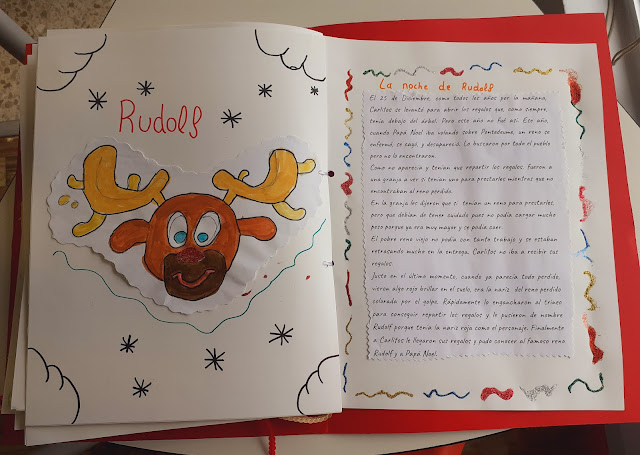 Rudolf
La noche de Rudolf
El 25 de Diciembre, como todos los años por la mañana,
Carlitos se levantó para abrir los regalos que, como siempre,
tenía debajo del árbol. Pero este año no fué así. Ese año,
cuando Papa Noel iba volando sobre Pontedeume, un reno se
enfermó, se cayó, y desapareció. Lo buscaron por todo el pueblo
pero no lo encontraron.
Como no aparecía y tenían que repartir los regalos, fueron a
una granja a ver si tenían uno para prestarles mientras que no
encontraban al reno perdido.
En la granja les dijeron que sí tenían un reno para prestarles,
pero que debían de tener cuidado pues no podía cargar mucho
peso porque ya era muy mayor y se podía caer.
El pobre reno viejo no podía con tanto trabajo y se estaban
retrasando mucho en la entrega. Carlitos no iba a recibir sus
regalos.
Justo en el último momento, cuando ya parecía todo perdido,
vieron algo rojo brillar en el suelo, era la nariz del reno perdido
colorada por el golpe. Rápidamente lo engancharon al trineo
para conseguir repartir los regalos y le pusieron de nombre
Rudolf porque tenía la nariz roja como el personaje. Finalmente
a Carlitos le llegaron sus regalos y pudo conocer al famoso reno
Rudolf y a Papa Noel.